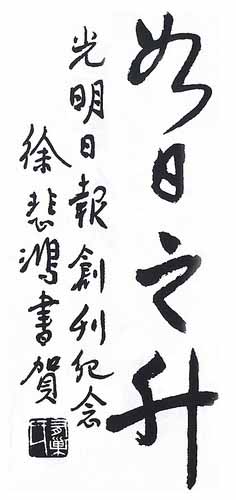 如日之升
光明日報創刊纪念
徐悲鴻書賀